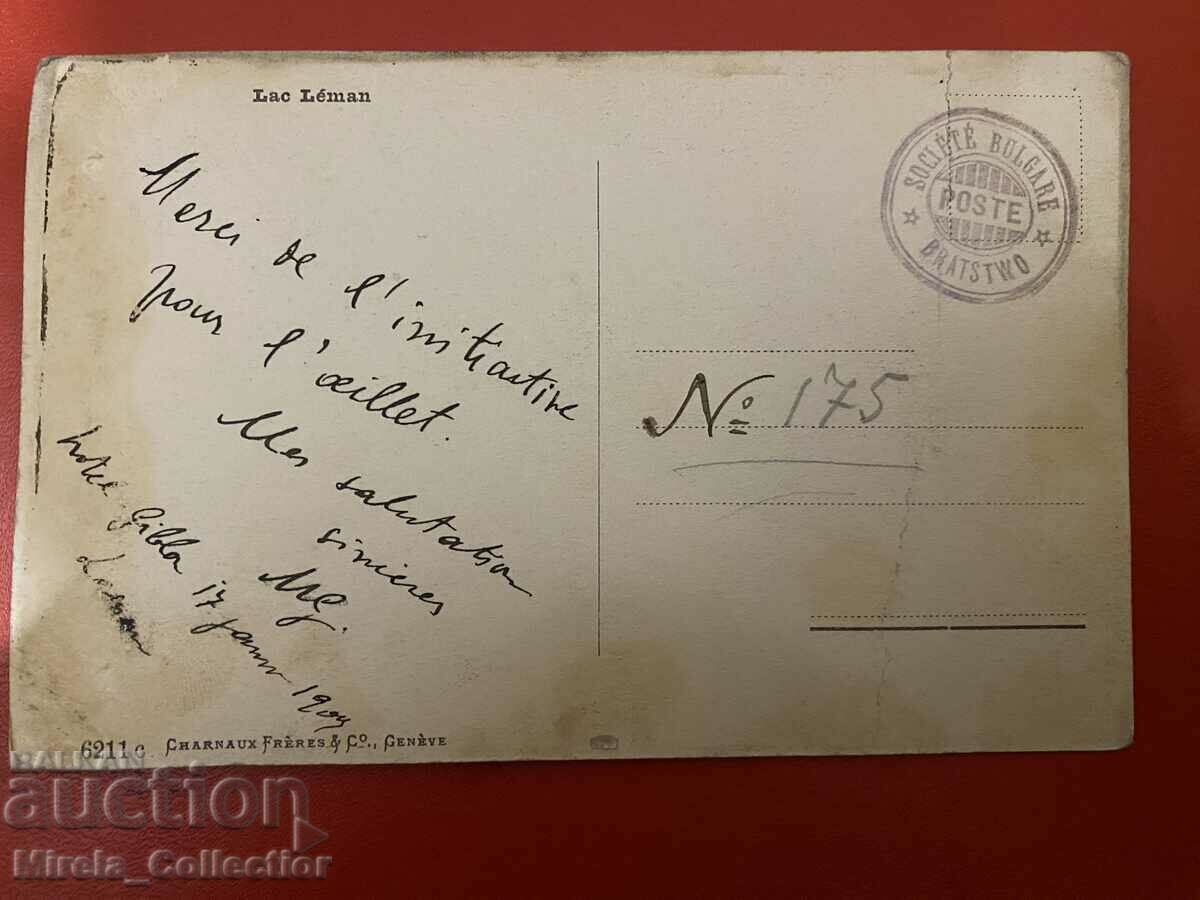 Lac Léman
Merci de l'initiative
pour l'œillet.
Mes salutation
sinières
hotel Gibbon 17 janv 1909
SOCIÉTÉ BULGARE
POSTE
BRATSTWO
№ 175
6211 c CHARNAUX FRÈRES & Cº., GENÈVE
BALKAN
auction
Mirela_Collectior